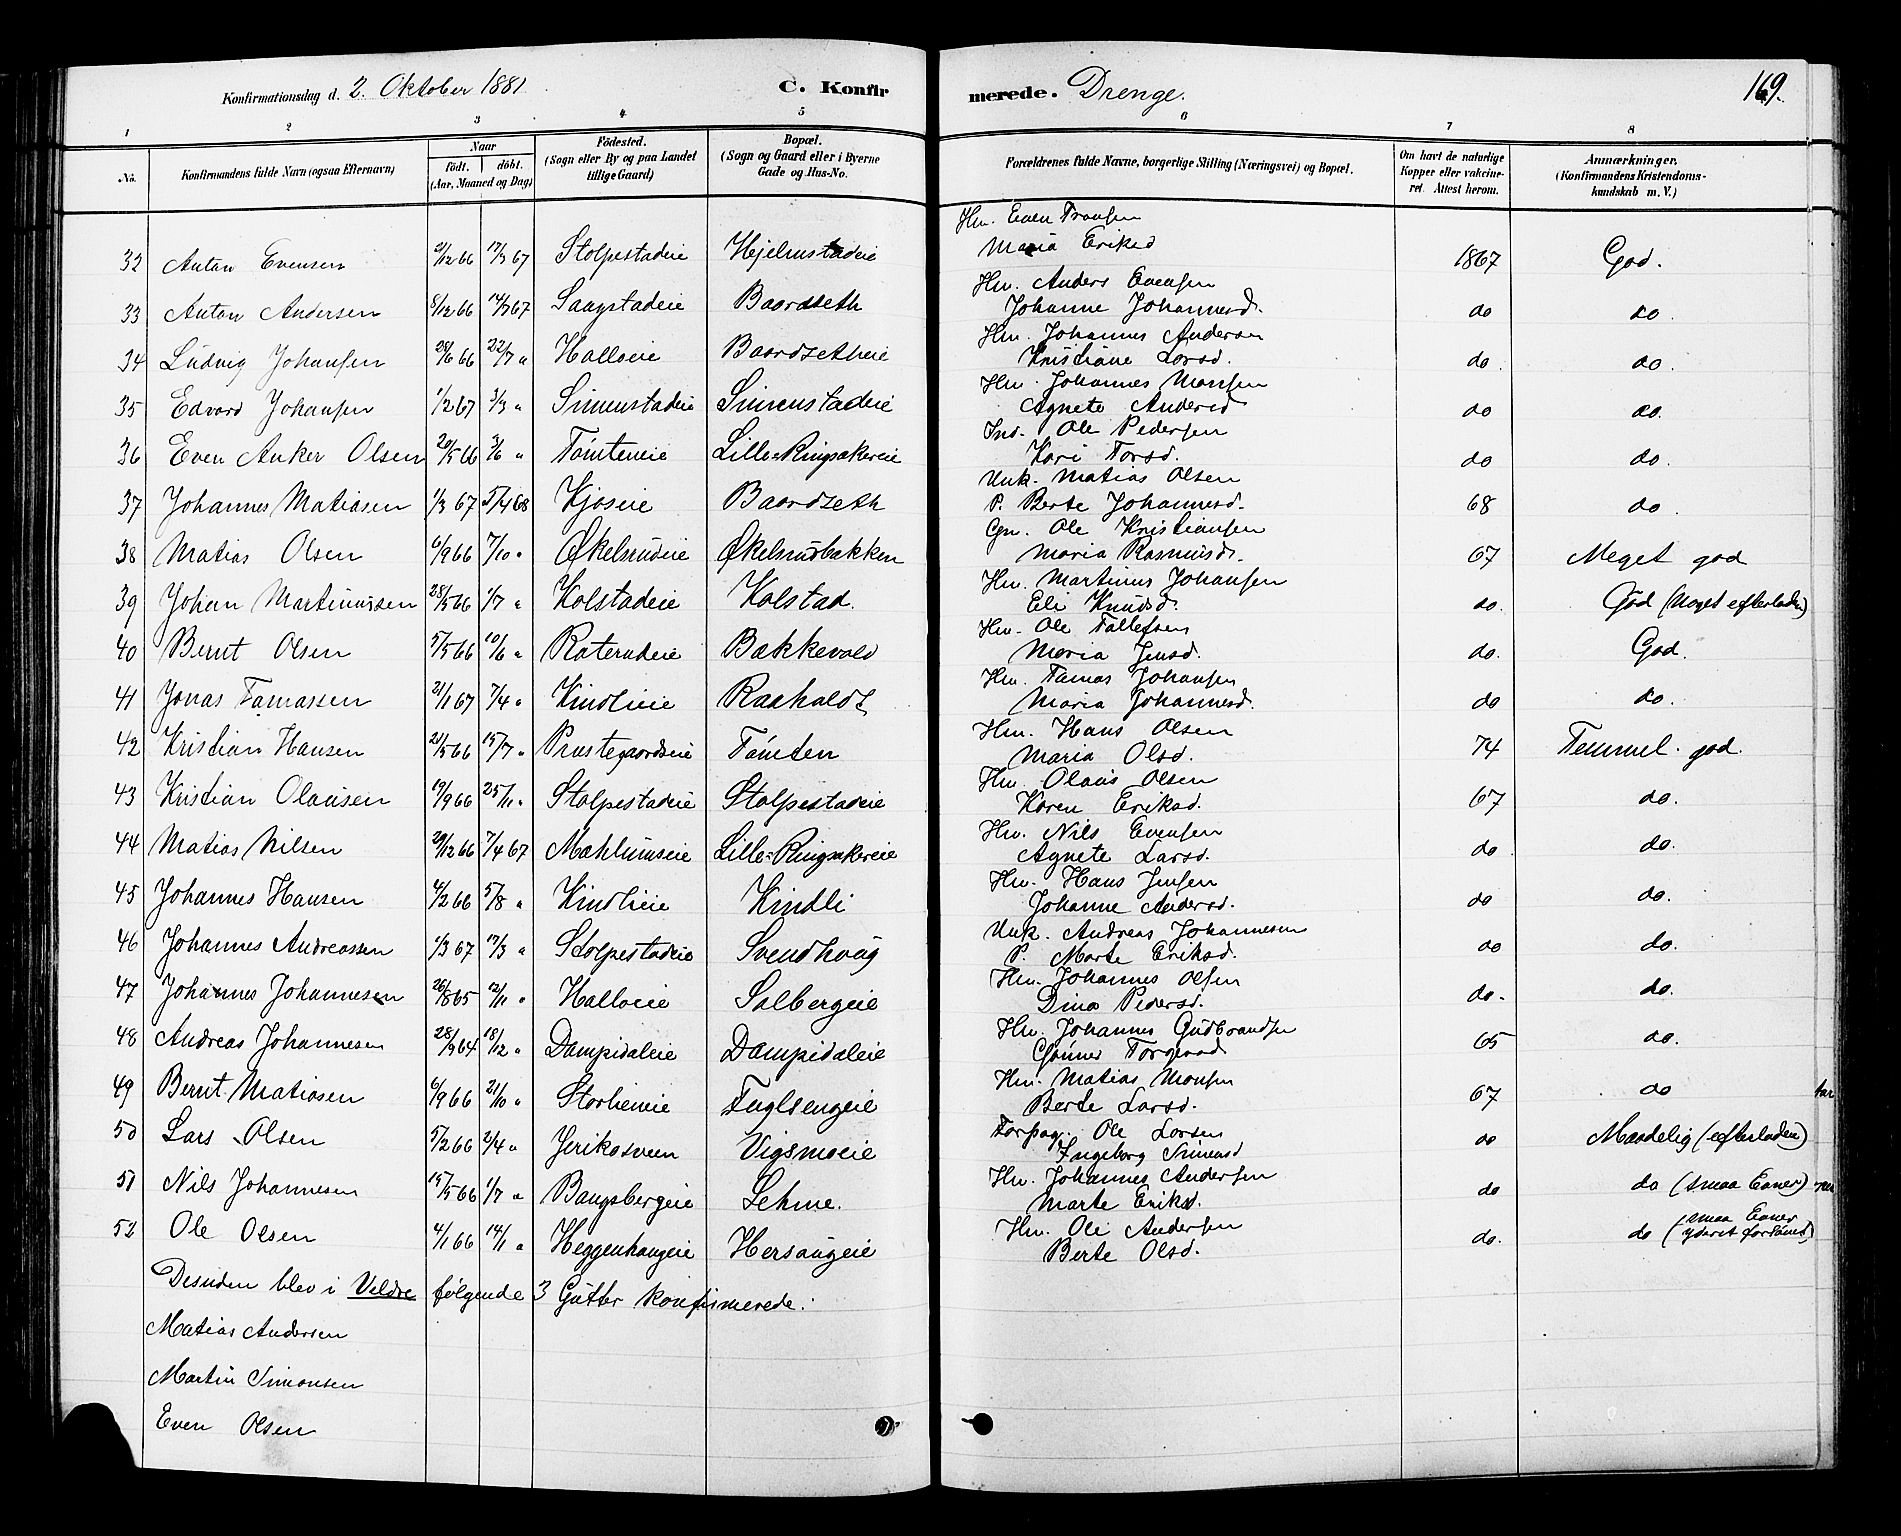 Konfirmationsdag d. 2. Oktober 1881
C. Konfirmerede. Drenge.
169.
1 2 3 4 5 6 7 8
No. Konfirmandens fulde Navn (ogsaa Efternavn) Naar Födt. döbt. (Aar, Maaned og Dag) Födested. (Sogn eller By og paa Landet tillige Gaard) Bopæl. (Sogn og Gaard eller i Byerne Gade og Hus-No. Forældrenes fulde Navne, borgerlige Stilling (Næringsvei) og Bopæl. Om havt de naturlige Kopper eller vakcineret. Attest herom. Anmærkninger. (Konfirmandens Kristendomskundskab m. V.)
Hm. Even Fransen
32 Anton Evensen 2/12 66 17/3 67 Stolpestadeie Hjelmstadeie Maria Eriksd 1867 God.
Hm. Anders Evensen
33 Anton Andersen 8/12 66 14/3 67 Saugstadeie Baardseth Johanne Johannesd. do do.
Hm. Johannes Andersen
34 Ludvig Johansen 28/6 66 22/7 " Halloeie Baardsetheie Kristiane Larsd. do. do.
Hm. Johannes Monsen
35 Edvard Johansen 1/2 67 3/3 " Simenstadeie Simenstadeie Agnete Andersd do do.
Ins. Ole Pedersen
36 Even Anker Olsen 20/5 66 3/6 " Tömteneie Lille-Ringsakereie Kari Torsd. do do.
Unk. Matias Olsen
37 Johannes Matiasen 1/3 67 5/4 68 Kjoseie Baardseth P. Berte Johannesd. 68 do.
Gm. Ole Kristiansen
38 Matias Olsen 6/9 66 7/10 " Økelsrudeie Økelsrudbakken Maria Rasmusd. 67 Meget god
Hm. Martinus Johansen
39 Johan Martinussen 28/5 66 1/7 " Kolstadeie Kolstad. Eli Knudsd. do. God (Noget efterladen)
Hm. Ole Tollefsen
40 Bernt Olsen 5/5 66 10/6 " Raterudeie Bakkevold Maria Jensd. do. God.
Hm. Tamas Johansen
41 Jonas Tamassen 21/1 67 7/4 " Kindlieie Raaholdt Maria Johannesd. do do.
Hm. Hans Olsen
42 Kristian Hansen 21/5 66 15/7 " Præstegaardseie Tömten Maria Olsd. 74 Temmel. god.
Hm. Olaus Olsen
43 Kristian Olausen 19/9 66 25/11 " Stolpestadeie Stolpestadeie Karen Eriksd. 67 do.
Hm. Nils Evensen
44 Matias Nilsen 29/12 66 7/4 67 Mahlumseie Lille-Ringsakereie Agnete Larsd. do. do.
Hm. Hans Jensen
45 Johannes Hansen 4/2 66 5/8 " Kindlieie Kindli Johanne Andersd. do do.
Unk. Andreas Johannesen
46 Johannes Andreassen 1/3 67 17/3 " Stolpestadeie Svendhaug P. Marte Eriksd. do do.
Hm. Johannes Olsen
47 Johannes Johannesen 26/8 65 12/11 " Halloeie Solbergeie Dina Pedersd. do. do.
Hm. Johannes Gudbrandsen
48 Andreas Johannesen 28/9 64 18/12 " Dampidaleie Dampidaleie 65 do.
Hm. Matias Monsen
49 Bernt Matiasen 6/9 66 21/10 " Storheneie Fuglsengeie Berte Larsd. 67 do
Torpag. Ole Larsen
50 Lars Olsen 5/2 66 2/4 " Jerikosveen Vigsmoeie Ingeborg Simensd do Maadelig (efterladen)
Hm. Johannes Andersen
51 Nils Johannesen 15/5 66 1/7 " Bangsbergeie Lehne. Marte Eriksd. do do (smaa Evner)
Hm. Ole Andersen
52 Ole Olsen 4/1 66 14/1 " Heggenhaugeie Hersougeie Berte Olsd. do. do (smaa Evner yderst forsömt)
Desuden blev i Veldre følgende 3 Gutter konfirmerede:
Matias Andersen
Martin Simonsen
Even Olsen